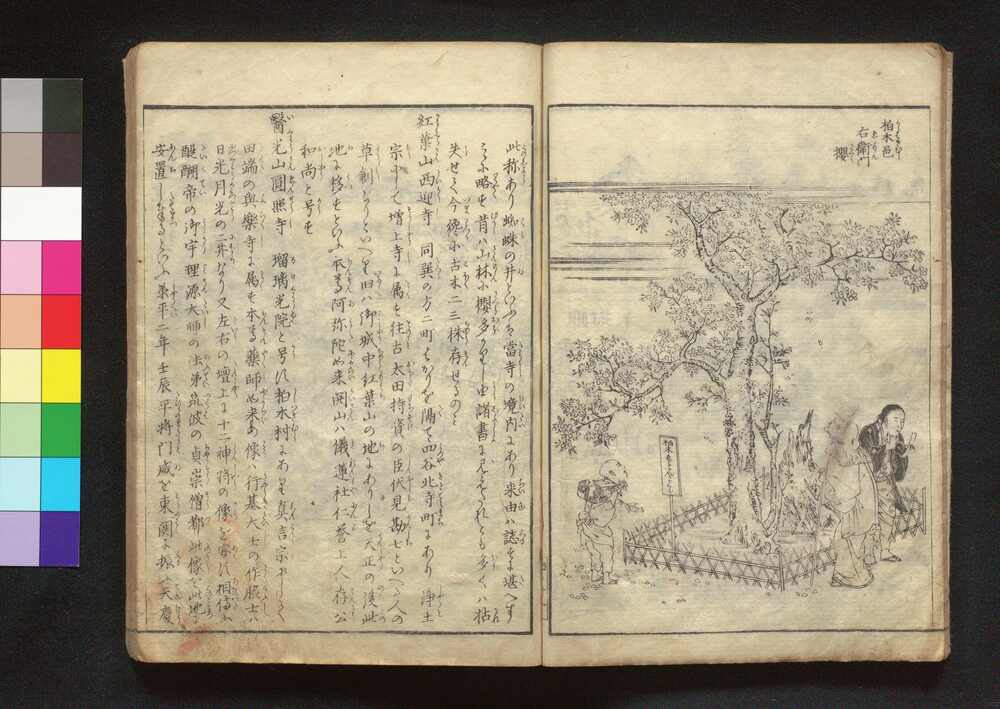 柏木邑
右衛門
櫻
柏木ゑもん櫻
此称あり蜘蛛の井といふも當寺の境内にあり来由ハ誌すに堪へず
故に略す昔ハ山林に櫻多かりし由諸書に見えたれとも多くハ枯
失せて今徳に古木二三株存せるのミ
紅葉山西迎寺 同巽の方二町はかりを隔て四谷北寺町にあり浄土
宗にして増上寺に属す往古太田持資の臣伏見勘七といへる人の
草創なりといへり旧ハ御城中紅葉山の地にありしを天正の後此
地に移すといふ本尊阿弥陀如来開山ハ儀蓮社仁誉上人存公
和尚と号す
醫光山圓照寺 瑠璃光院と号す柏木村にあり真言宗にして
田端の與樂寺に属す本尊藥師如来の像ハ行基大士の作脇士ハ
日光月光の二井なり又左右の壇上に十二神将の像を安す相傳ふ
醍醐帝の御宇理源大師の法弟筑波の貞崇僧都此像を此地に
安置し奉るといふ承平二年壬辰平将門威を東関に振ひ天慶